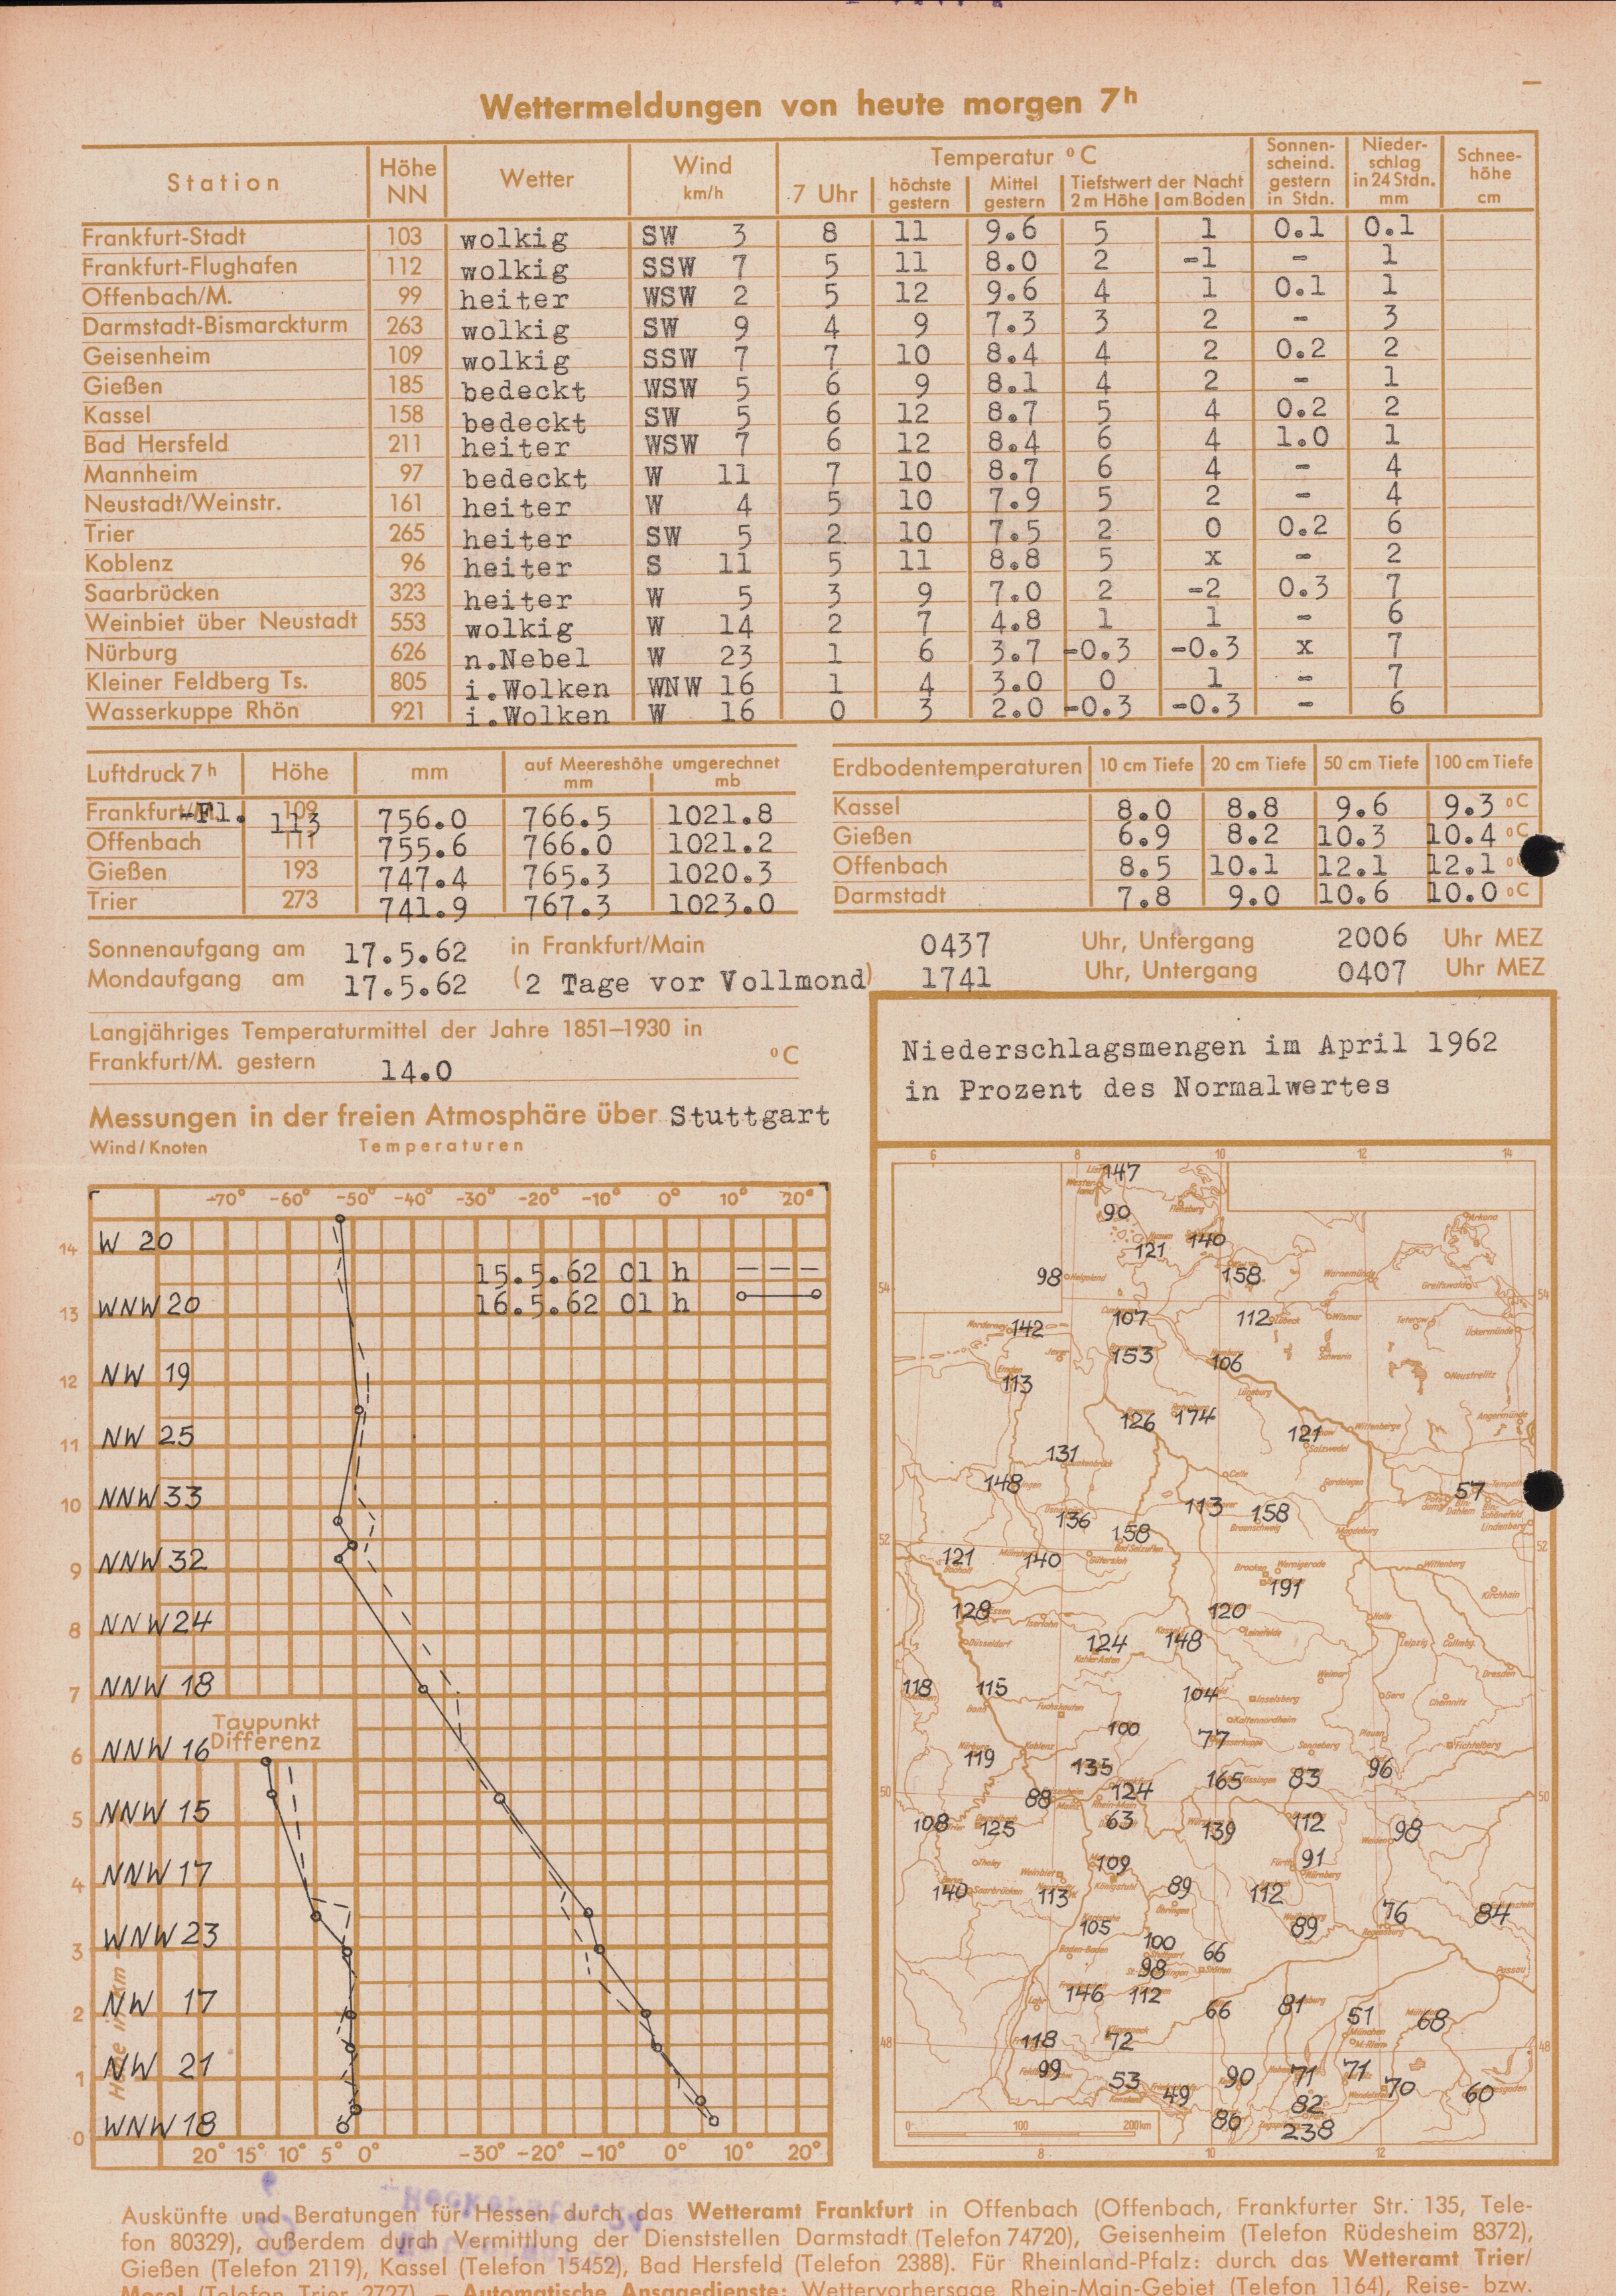 Wettermeldungen von heute morgen 7h
Station Höhe NN Wetter Wind km/h Temperatur °C Sonnenscheind. gestern in Stdn. Niederschlag in 24 Stdn. mm Schneehöhe cm
7 Uhr höchste gestern Mittel gestern Tiefstwert der Nacht 2 m Höhe am Boden
Frankfurt-Stadt 103 wolkig SW 3 8 11 9.6 5 1 0.1 0.1
Frankfurt-Flughafen 112 wolkig SSW 7 5 11 8.0 2 -1 - 1
Offenbach/M. 99 heiter WSW 2 5 12 9.6 4 1 0.1 1
Darmstadt-Bismarckturm 263 wolkig SW 9 4 9 7.3 3 2 - 3
Geisenheim 109 wolkig SSW 7 7 10 8.4 4 2 0.2 2
Gießen 185 bedeckt WSW 5 6 9 8.1 4 2 - 1
Kassel 158 bedeckt SW 5 6 12 8.7 5 4 0.2 2
Bad Hersfeld 211 heiter WSW 7 6 12 8.4 6 4 1.0 1
Mannheim 97 bedeckt W 11 7 10 8.7 6 4 - 4
Neustadt/Weinstr. 161 heiter W 4 5 10 7.9 5 2 - 4
Trier 265 heiter SW 5 2 10 7.5 2 0 0.2 6
Koblenz 96 heiter S 11 5 11 8.8 5 x - 2
Saarbrücken 323 heiter W 5 3 9 7.0 2 -2 0.3 7
Weinbiet über Neustadt 553 wolkig W 14 2 7 4.8 1 1 - 6
Nürburg 626 n.Nebel W 23 1 6 3.7 -0.3 -0.3 x 7
Kleiner Feldberg Ts. 805 i.Wolken WNW 16 1 4 3.0 0 1 - 7
Wasserkuppe Rhön 921 i.Wolken W 16 0 3 2.0 -0.3 -0.3 - 6
Luftdruck 7h Höhe mm auf Meereshöhe umgerechnet mm mb
Frankfurt/M. -Fl. 109 113 756.0 766.5 1021.8
Offenbach 111 755.6 766.0 1021.2
Gießen 193 747.4 765.3 1020.3
Trier 273 741.9 767.3 1023.0
Erdbodentemperaturen 10 cm Tiefe 20 cm Tiefe 50 cm Tiefe 100 cm Tiefe
Kassel 8.0 8.8 9.6 9.3 °C
Gießen 6.9 8.2 10.3 10.4 °C
Offenbach 8.5 10.1 12.1 12.1 °C
Darmstadt 7.8 9.0 10.6 10.0 °C
Sonnenaufgang am 17.5.62 in Frankfurt/Main 0437 Uhr, Untergang 2006 Uhr MEZ
Mondaufgang am 17.5.62 (2 Tage vor Vollmond) 1741 Uhr, Untergang 0407 Uhr MEZ
Langjähriges Temperaturmittel der Jahre 1851–1930 in
Frankfurt/M. gestern 14.0 °C
Messungen in der freien Atmosphäre über Stuttgart
Wind/Knoten Temperaturen
-70° -60° -50° -40° -30° -20° -10° 0° 10° 20°
14 W 20
15.5.62 01 h
16.5.62 01 h
13 WNW 20
12 NW 19
11 NW 25
10 NNW 33
9 NNW 32
8 NNW 24
7 NNW 18
Taupunkt
Differenz
6 NNW 16
5 NNW 15
4 NNW 17
3 WNW 23
2 NW 17
1 NW 21
0 WNW 18
Höhe in km
20° 15° 10° 5° 0° -30° -20° -10° 0° 10° 20°
Niederschlagsmengen im April 1962
in Prozent des Normalwertes
6 8 10 12 14
147
90
121 140
98 Helgoland 158
54 54
142 107 112
153 106
113
126 174 121
131
148 57
136 158 113 158
52 52
121 140
191
128 120
124 148
118 115 104
100 77
119 135 96
88 124 165 83
50 50
108 125 63 139 112 98
91
109
140 113 89 112
105 89 76 84
100 66
98
146 112 66 81 51 68
48 48
118 72
99 53 49 90 71 71 70 60
82
86 238
0 100 200 km
8 10 12
Auskünfte und Beratungen für Hessen durch das Wetteramt Frankfurt in Offenbach (Offenbach, Frankfurter Str. 135, Tele-
fon 80329), außerdem durch Vermittlung der Dienststellen Darmstadt (Telefon 74720), Geisenheim (Telefon Rüdesheim 8372),
Gießen (Telefon 2119), Kassel (Telefon 15452), Bad Hersfeld (Telefon 2388). Für Rheinland-Pfalz: durch das Wetteramt Trier/
Mosel (Telefon Trier 2727). — Automatische Ansagedienste: Wettervorhersage Rhein-Main-Gebiet (Telefon 1164), Reise- bzw.